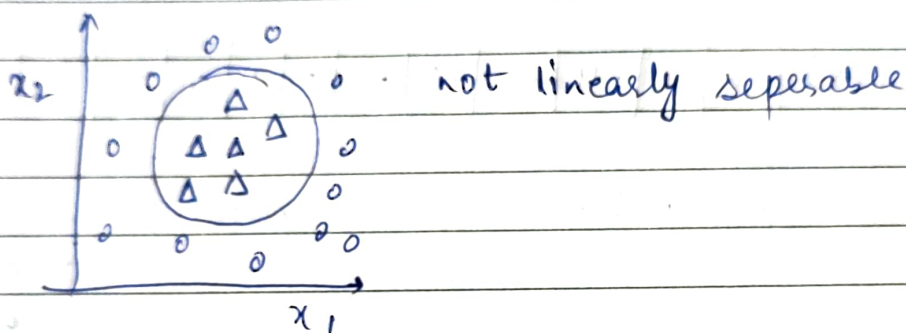 x₂
not linearly seperable
x₁